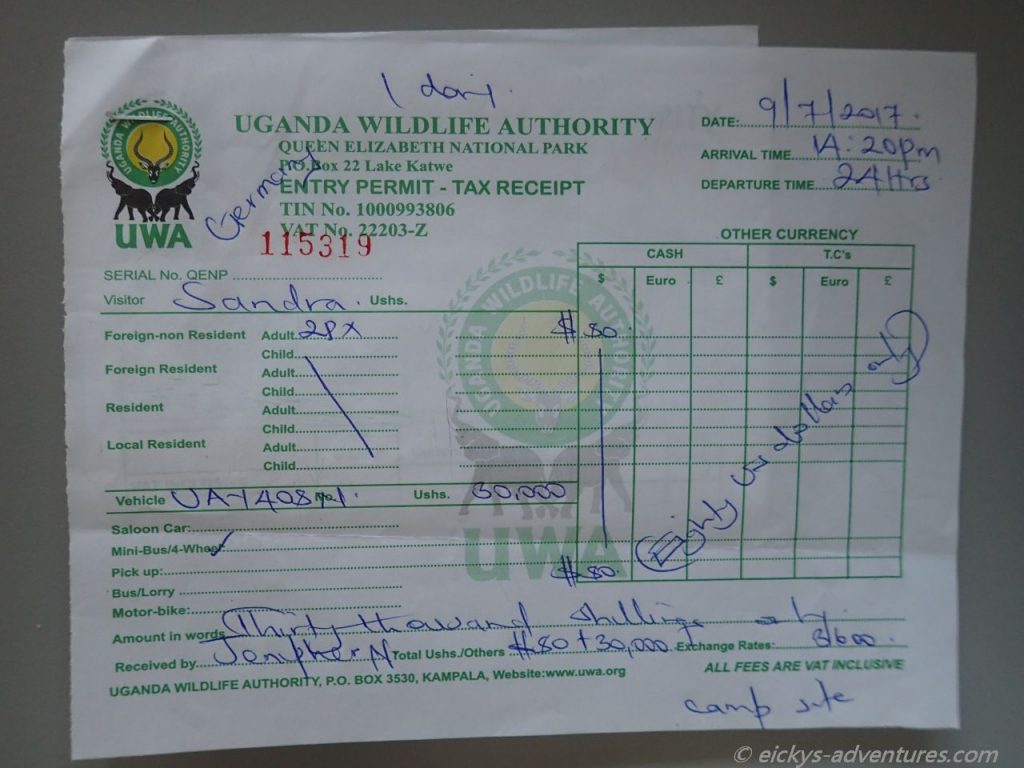 1 day.
UGANDA WILDLIFE AUTHORITY
QUEEN ELIZABETH NATIONAL PARK
P.O.Box 22 Lake Katwe
ENTRY PERMIT - TAX RECEIPT
TIN No. 1000993806
VAT No. 22203-Z
Germany
115319
UGANDA WILDLIFE AUTHORITY
UWA
DATE: 9/7/2017.
ARRIVAL TIME 14:20pm
DEPARTURE TIME 24Hrs
SERIAL No. QENP
Visitor Sandra. Ushs.
OTHER CURRENCY
CASH T.C's
$ Euro £ $ Euro £
Foreign-non Resident Adult 2PX $80.
Child
Foreign Resident Adult
Child
Resident Adult
Child
Local Resident Adult
Child
UGANDA WILDLIFE AUTHORITY
UWA
Vehicle Ushs. 30,000
Saloon Car:
Mini-Bus/4-Wheel:
Pick up: $80.
Bus/Lorry
Motor-bike:
Eighty us dollars only
Amount in words Thirty thousand Shillings only.
Received by Total Ushs./Others $80 + 30,000 Exchange Rates: 3600
UGANDA WILDLIFE AUTHORITY, P.O. BOX 3530, KAMPALA, Website:www.uwa.org
ALL FEES ARE VAT INCLUSIVE
camp site
© eickys-adventures.com